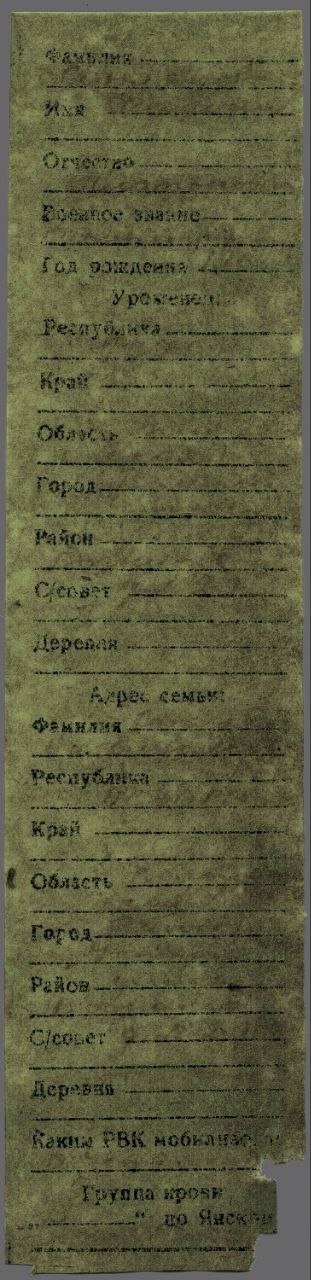 Фамилия
Имя
Отчество
Военное звание
Год рождения
Уроженец:
Республика
Край
Область
Город
Район
С/совет
Деревня
Адрес семьи:
Фамилия
Республика
Край
Область
Город
Район
С/совет
Деревня
Каким РВК
Группа крови
„ “ по